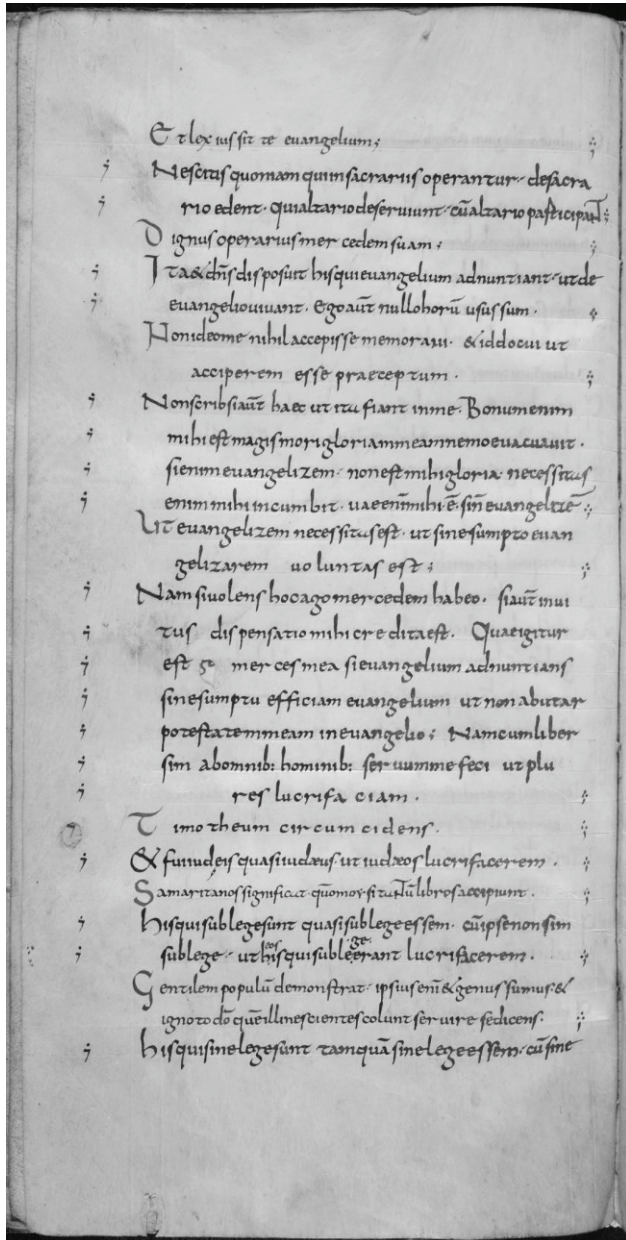 Et lex iussit te evangelium;
Nescitis quoniam qui in sacrariis operantur· de sacra
rio edent· qui altario deserviunt· cū altario participant;
Dignus operarius mercedem suam;
Ita & dn̄s disposuit his qui evangelium adnuntiant· ut de
evangelio vivant. Ego aūt nullo horū usus sum.
Non ideo me nihil accepisse memoravi· & id docui ut
acciperem esse praeceptum.
Non scribsi aūt haec ut ita fiant in me. Bonum enim
mihi est magis mori gloriam meam nemo evacuavit.
si enim evangelizem· non est mihi gloria· necessitas
enim mihi incumbit· vae enī mihi ē· si n̄ evangelizē
Ut evangelizem necessitas est· ut sine sumpto evan
gelizarem voluntas est;
Nam si volens hoc ago mercedem habeo. si aūt invi
tus dispensatio mihi credita est. Quae igitur
est merces mea si evangelium adnuntians
sine sumptu efficiam evangelium ut non abutar
potestatem meam in evangelio; Nam cum liber
sim ab omnib: hominib: servum me feci ut plu
res lucrifaciam.
Timotheum circumcidens.
& fui iudeis quasi iudæus· ut iudæos lucrifacerem.
Samaritanos significat libros accipiunt.
his qui sub lege sunt quasi sub lege essem· cū ipse non sim
sub lege· ut eos his qui sub legeerant lucrifacerem.
Gentilem populū demonstrat· ipsius enī & genus sumus· &
ignoto dō quē illi nescientes colunt servire se dicens·
his qui sine lege sunt tamquā sine lege essem· cū sine